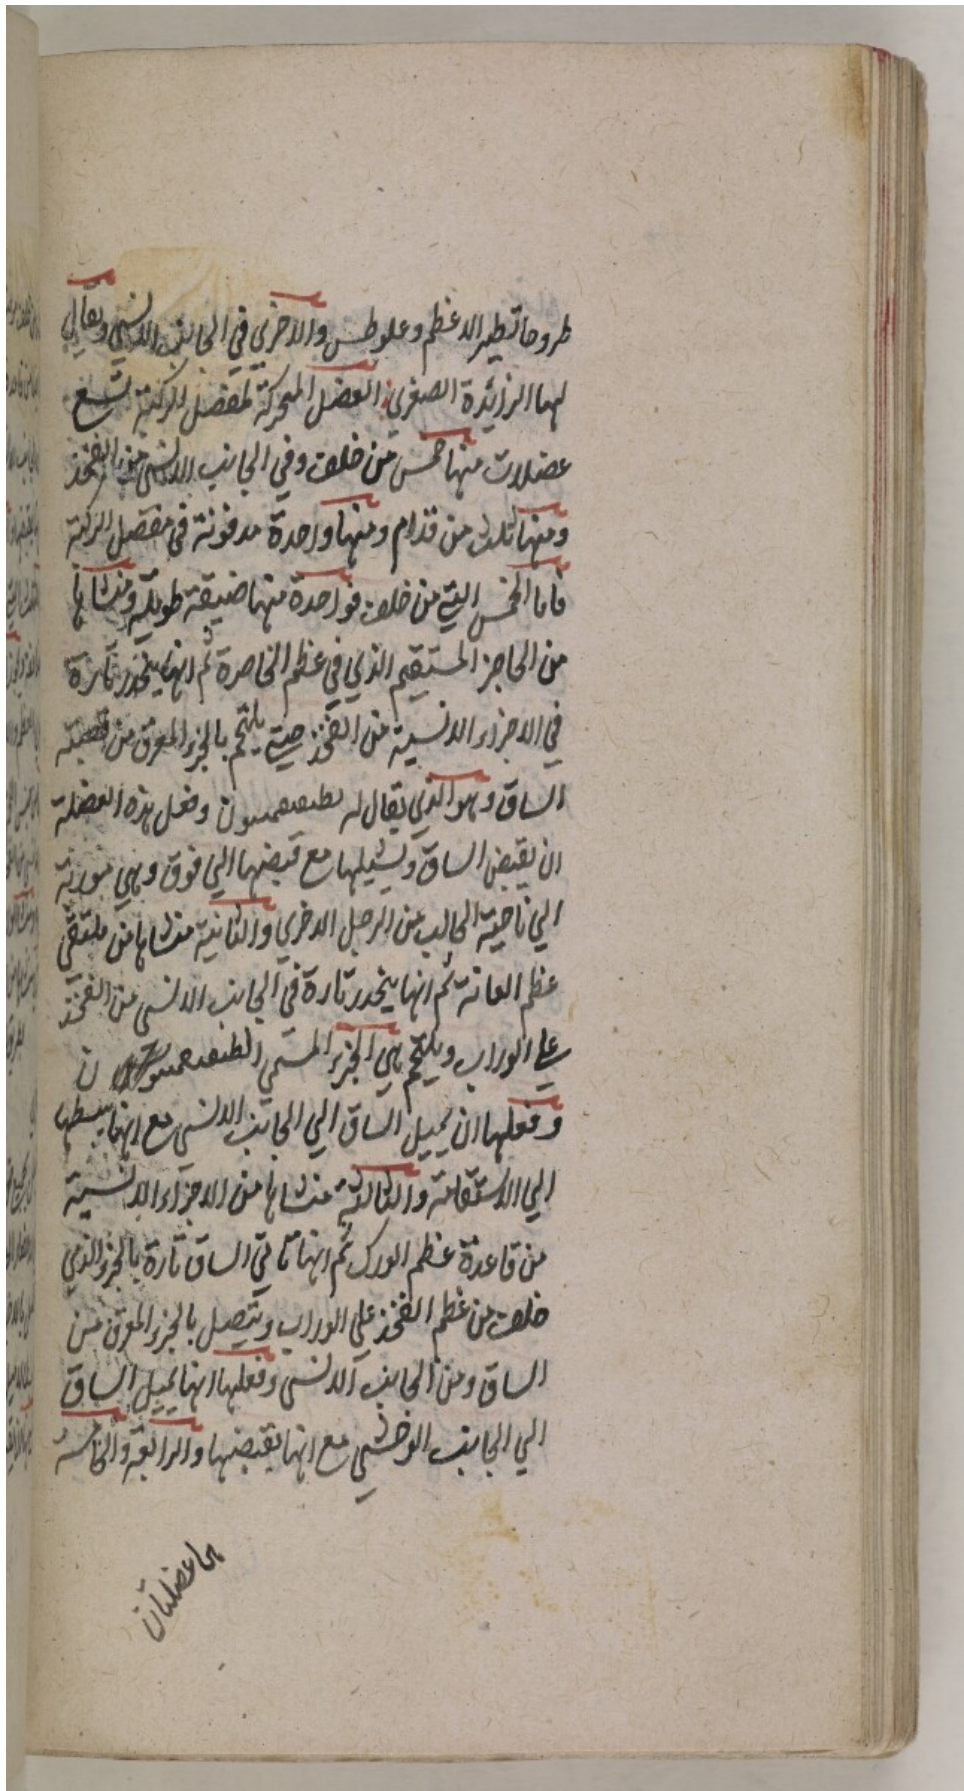 طروحانطير الاعظم وعلوطس والاخرى في الجانب الانسي ويقال
لها الزائدة الصغرى العضل المحركة لمفصل الركبة تسع
عضلات منها خمس من خلف وفي الجانب الانسي من الفخذ
ومنها ثلث من قدام ومنها واحدة مدفونة في مفصل الركبة
فاما الخمس التي من خلف فواحدة منها ضيقة طويلة ومنشاها
من الحاجز المستقيم الذي في عظم الخاصرة ثم انها ينحدر تارة
في الاجزاء الانسية من الفخذ حتى يلتحم بالجزء المعرق من قصبة
الساق وهو الذي يقال له وفعل هذه العضلة
ان يقبض الساق ويشيلها مع قبضها الي فوق وهي موربة
الي ناحية الحالب من الرجل الاخري والثانية منشاها من ملتقي
عظم العانة ثم انها ينحدر تارة في الجانب الانسي من الفخذ
علي الوراب ويلتحم هي الجزء المسمي
وفعلها ان يميل الساق الي الجانب الانسي مع انها يبسطها
الي الاستقامة والثالثة منشاها من الاجزاء الانسية
من قاعدة عظم الورك ثم انها تاتي الساق تارة بالجزء الذي
خلف من عظم الفخذ علي الوراب ويتصل بالجزء المعرق من
الساق ومن الجانب الانسي وفعلها انها يميل الساق
الي الجانب الوحشي مع انها يقبضها والرابعة والخامسة
هما عضلتان